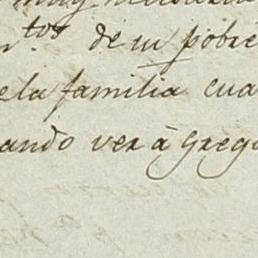 n.tos de un pobre
ela familia cua
ando ver à Grego